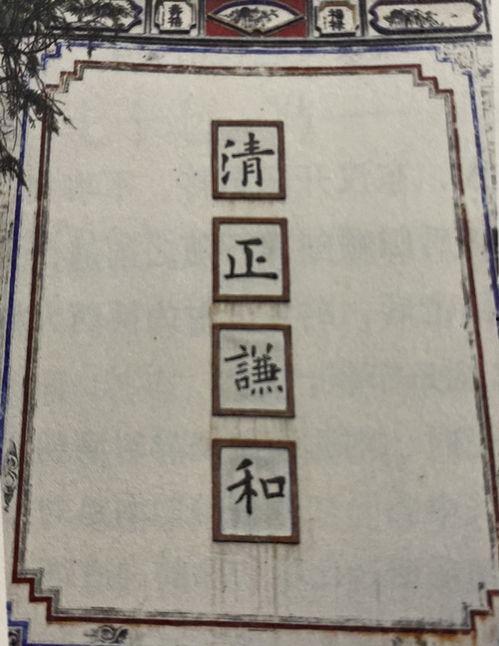 清
正
謙
和